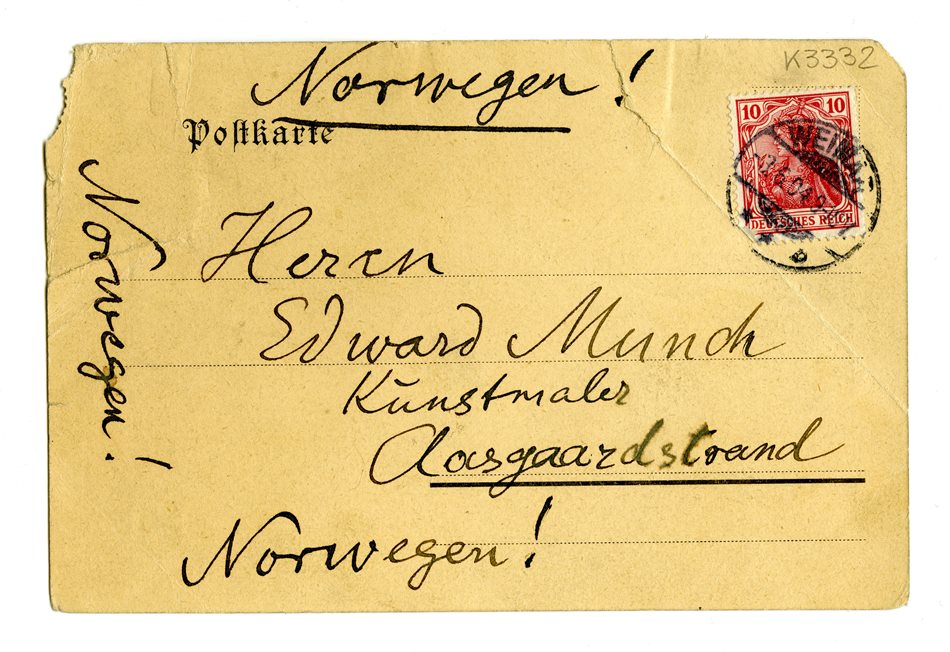 K3332
Norwegen!
Postkarte
10 10
WEIMAR
DEUTSCHES REICH
Norwegen!
Herrn
Edward Munch
Kunstmaler
Aasgaardstrand
Norwegen!